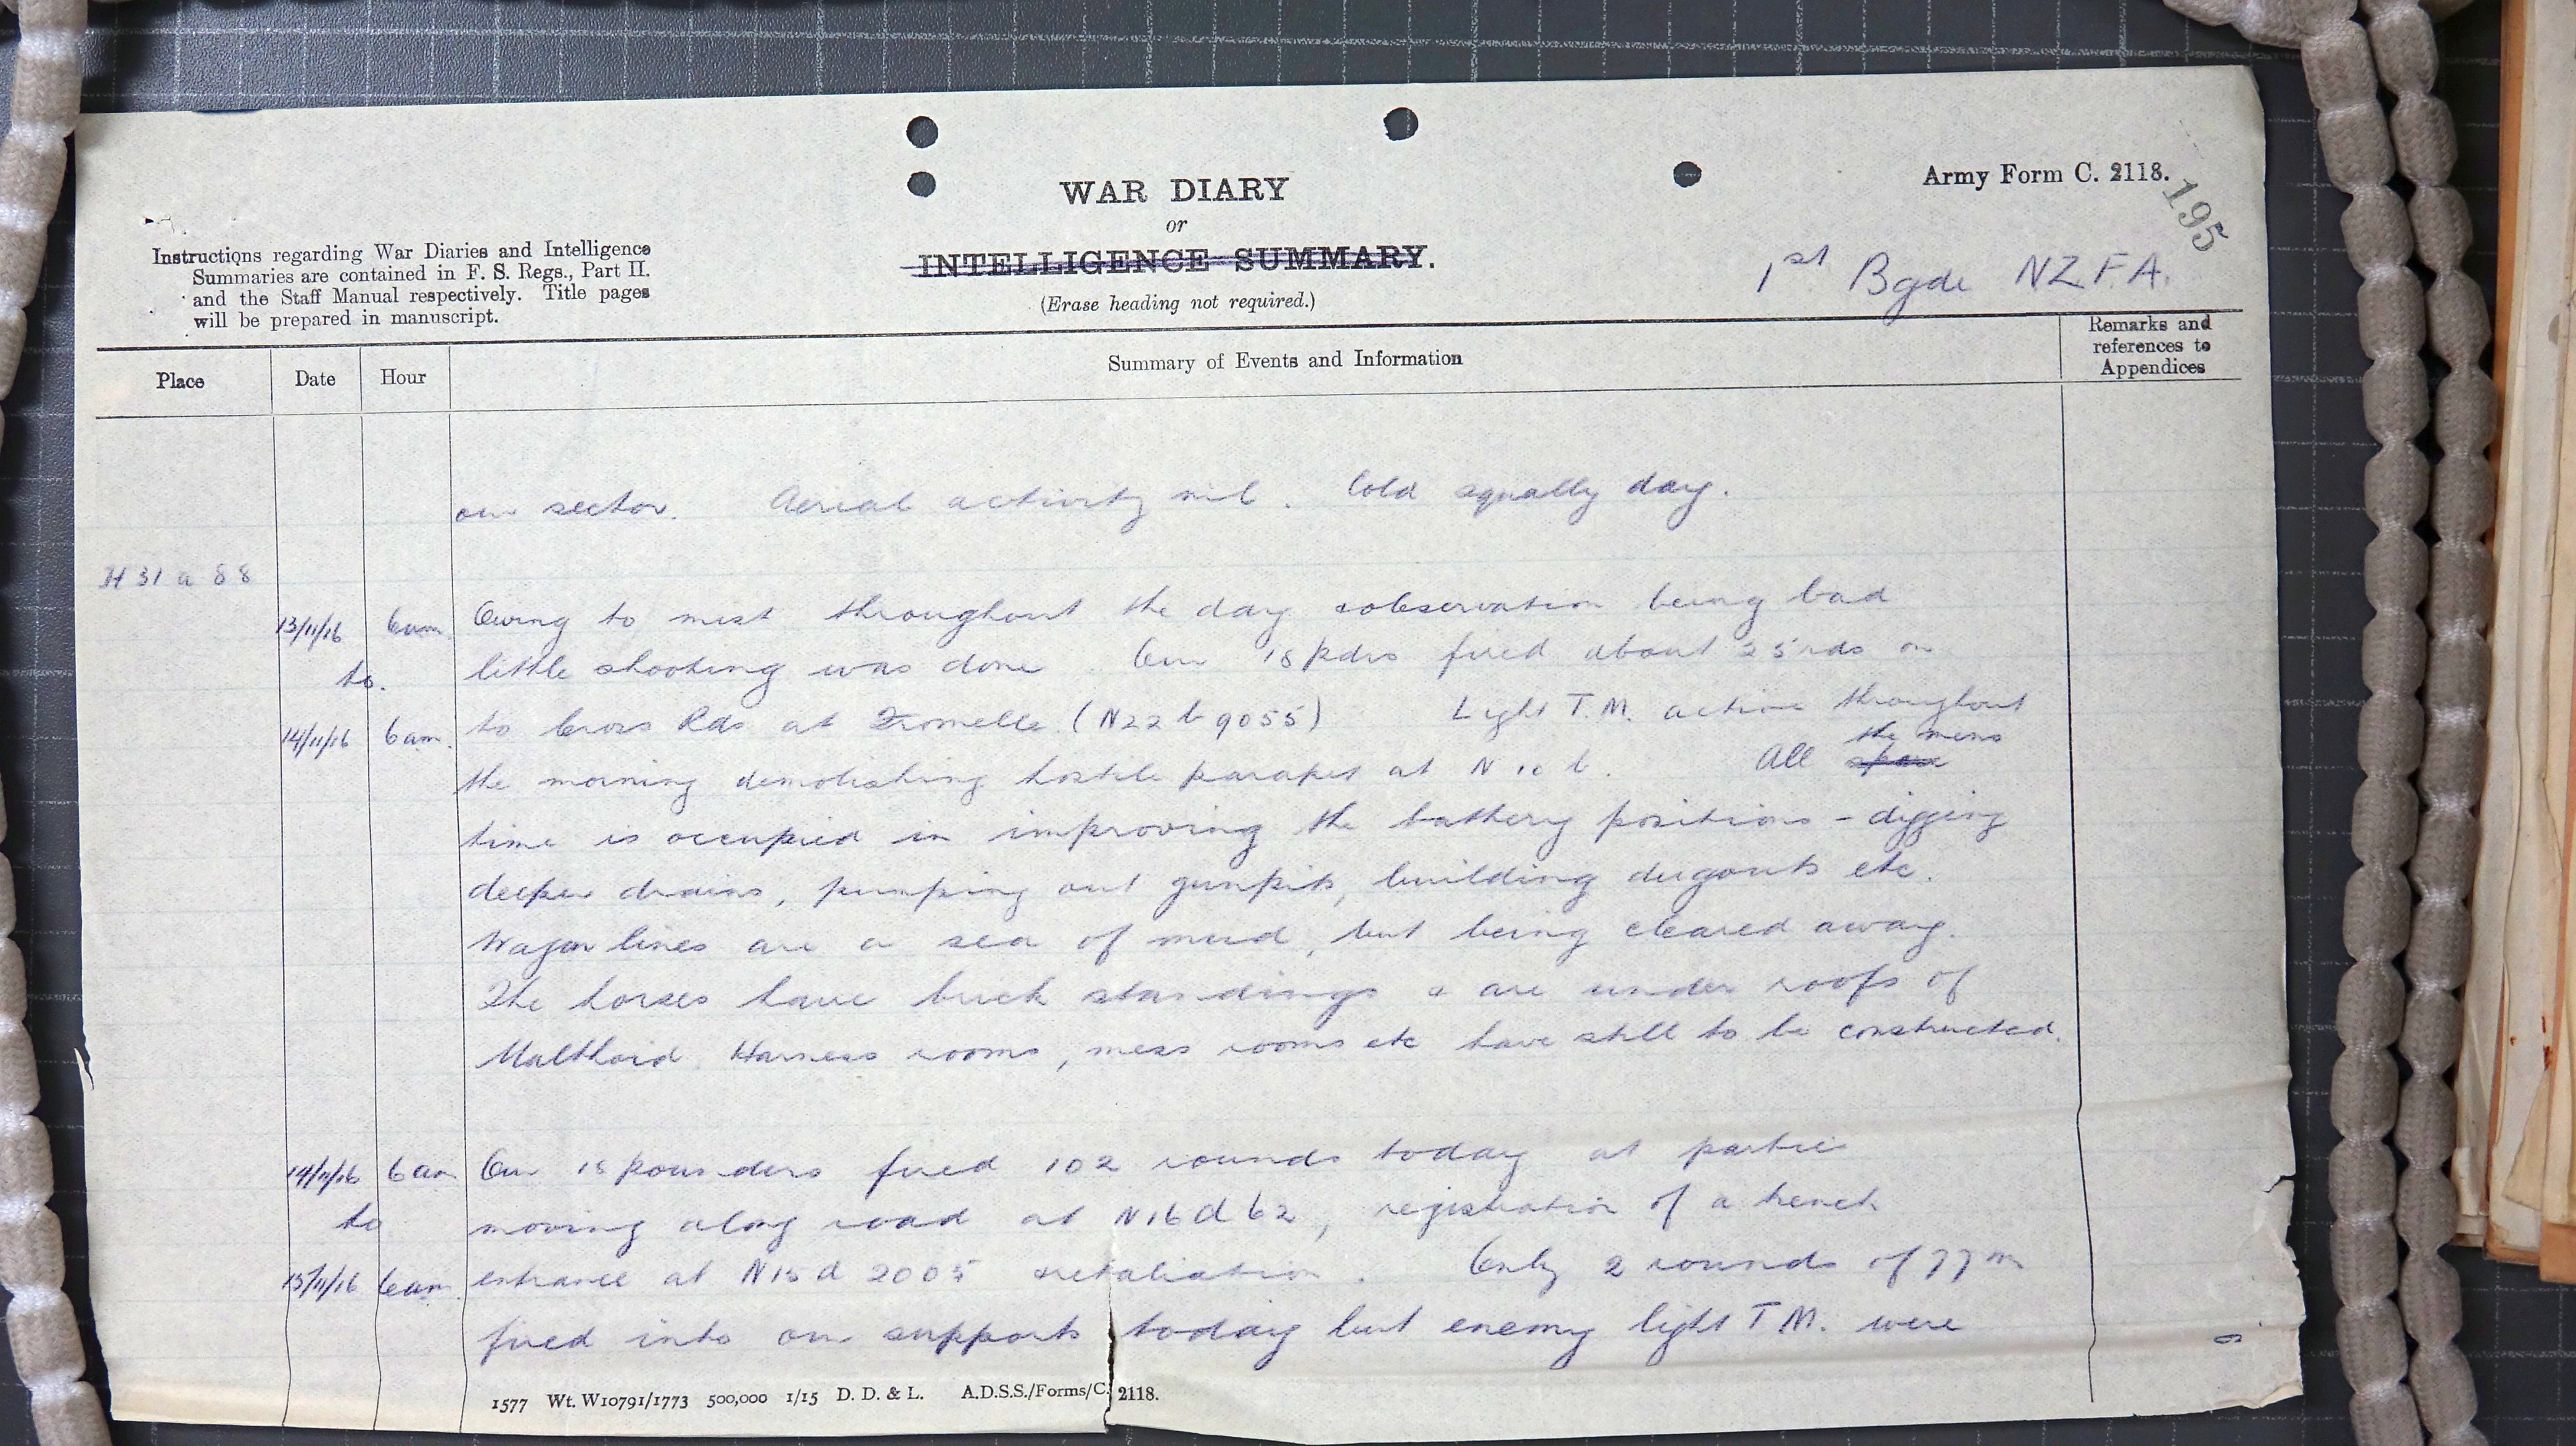 Army Form C. 2118.
195
WAR DIARY
or
INTELLIGENCE SUMMARY.
(Erase heading not required.)
Instructions regarding War Diaries and Intelligence
Summaries are contained in F. S. Regs., Part II.
and the Staff Manual respectively. Title pages
will be prepared in manuscript.
1st Bgde NZFA.
Place Date Hour Summary of Events and Information Remarks and references to Appendices
our sector. Aerial activity nil. Cold squally day.
H 31 a 88
13/11/16 6am Owing to mist throughout the day & observation being bad
to. little shooting was done. Our 18 pdrs fired about 25 rds on
14/11/16 6am. to Cross Rds at Fromelle. (N22 b 9055) Light T.M. active throughout
the mens
the morning demolishing hostile parapet at N 10 b. All spare
time is occupied in improving the battery positions - digging
deeper drains, pumping out gunpits, building dugouts etc.
Wagon lines are a sea of mud, but being cleared away.
The horses have brick standings & are under roofs of
Malthoid. Harness rooms, mess rooms etc have still to be constructed.
14/11/16 6am Our 18 pounders fired 102 rounds today at parties
to moving along road at N16 d 62, registration of a trench
15/11/16 6am. entrance at N15 d 2005 & retaliation. Only 2 rounds of 77 m
fired into our supports today but enemy light T M. were
1577 Wt. W10791/1773 500,000 1/15 D. D. & L. A.D.S.S./Forms/C. 2118.